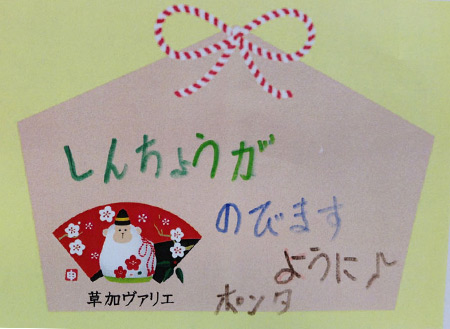 しんちょうが
のびます
ように♪
ポンタ
申
草加ヴァリエ